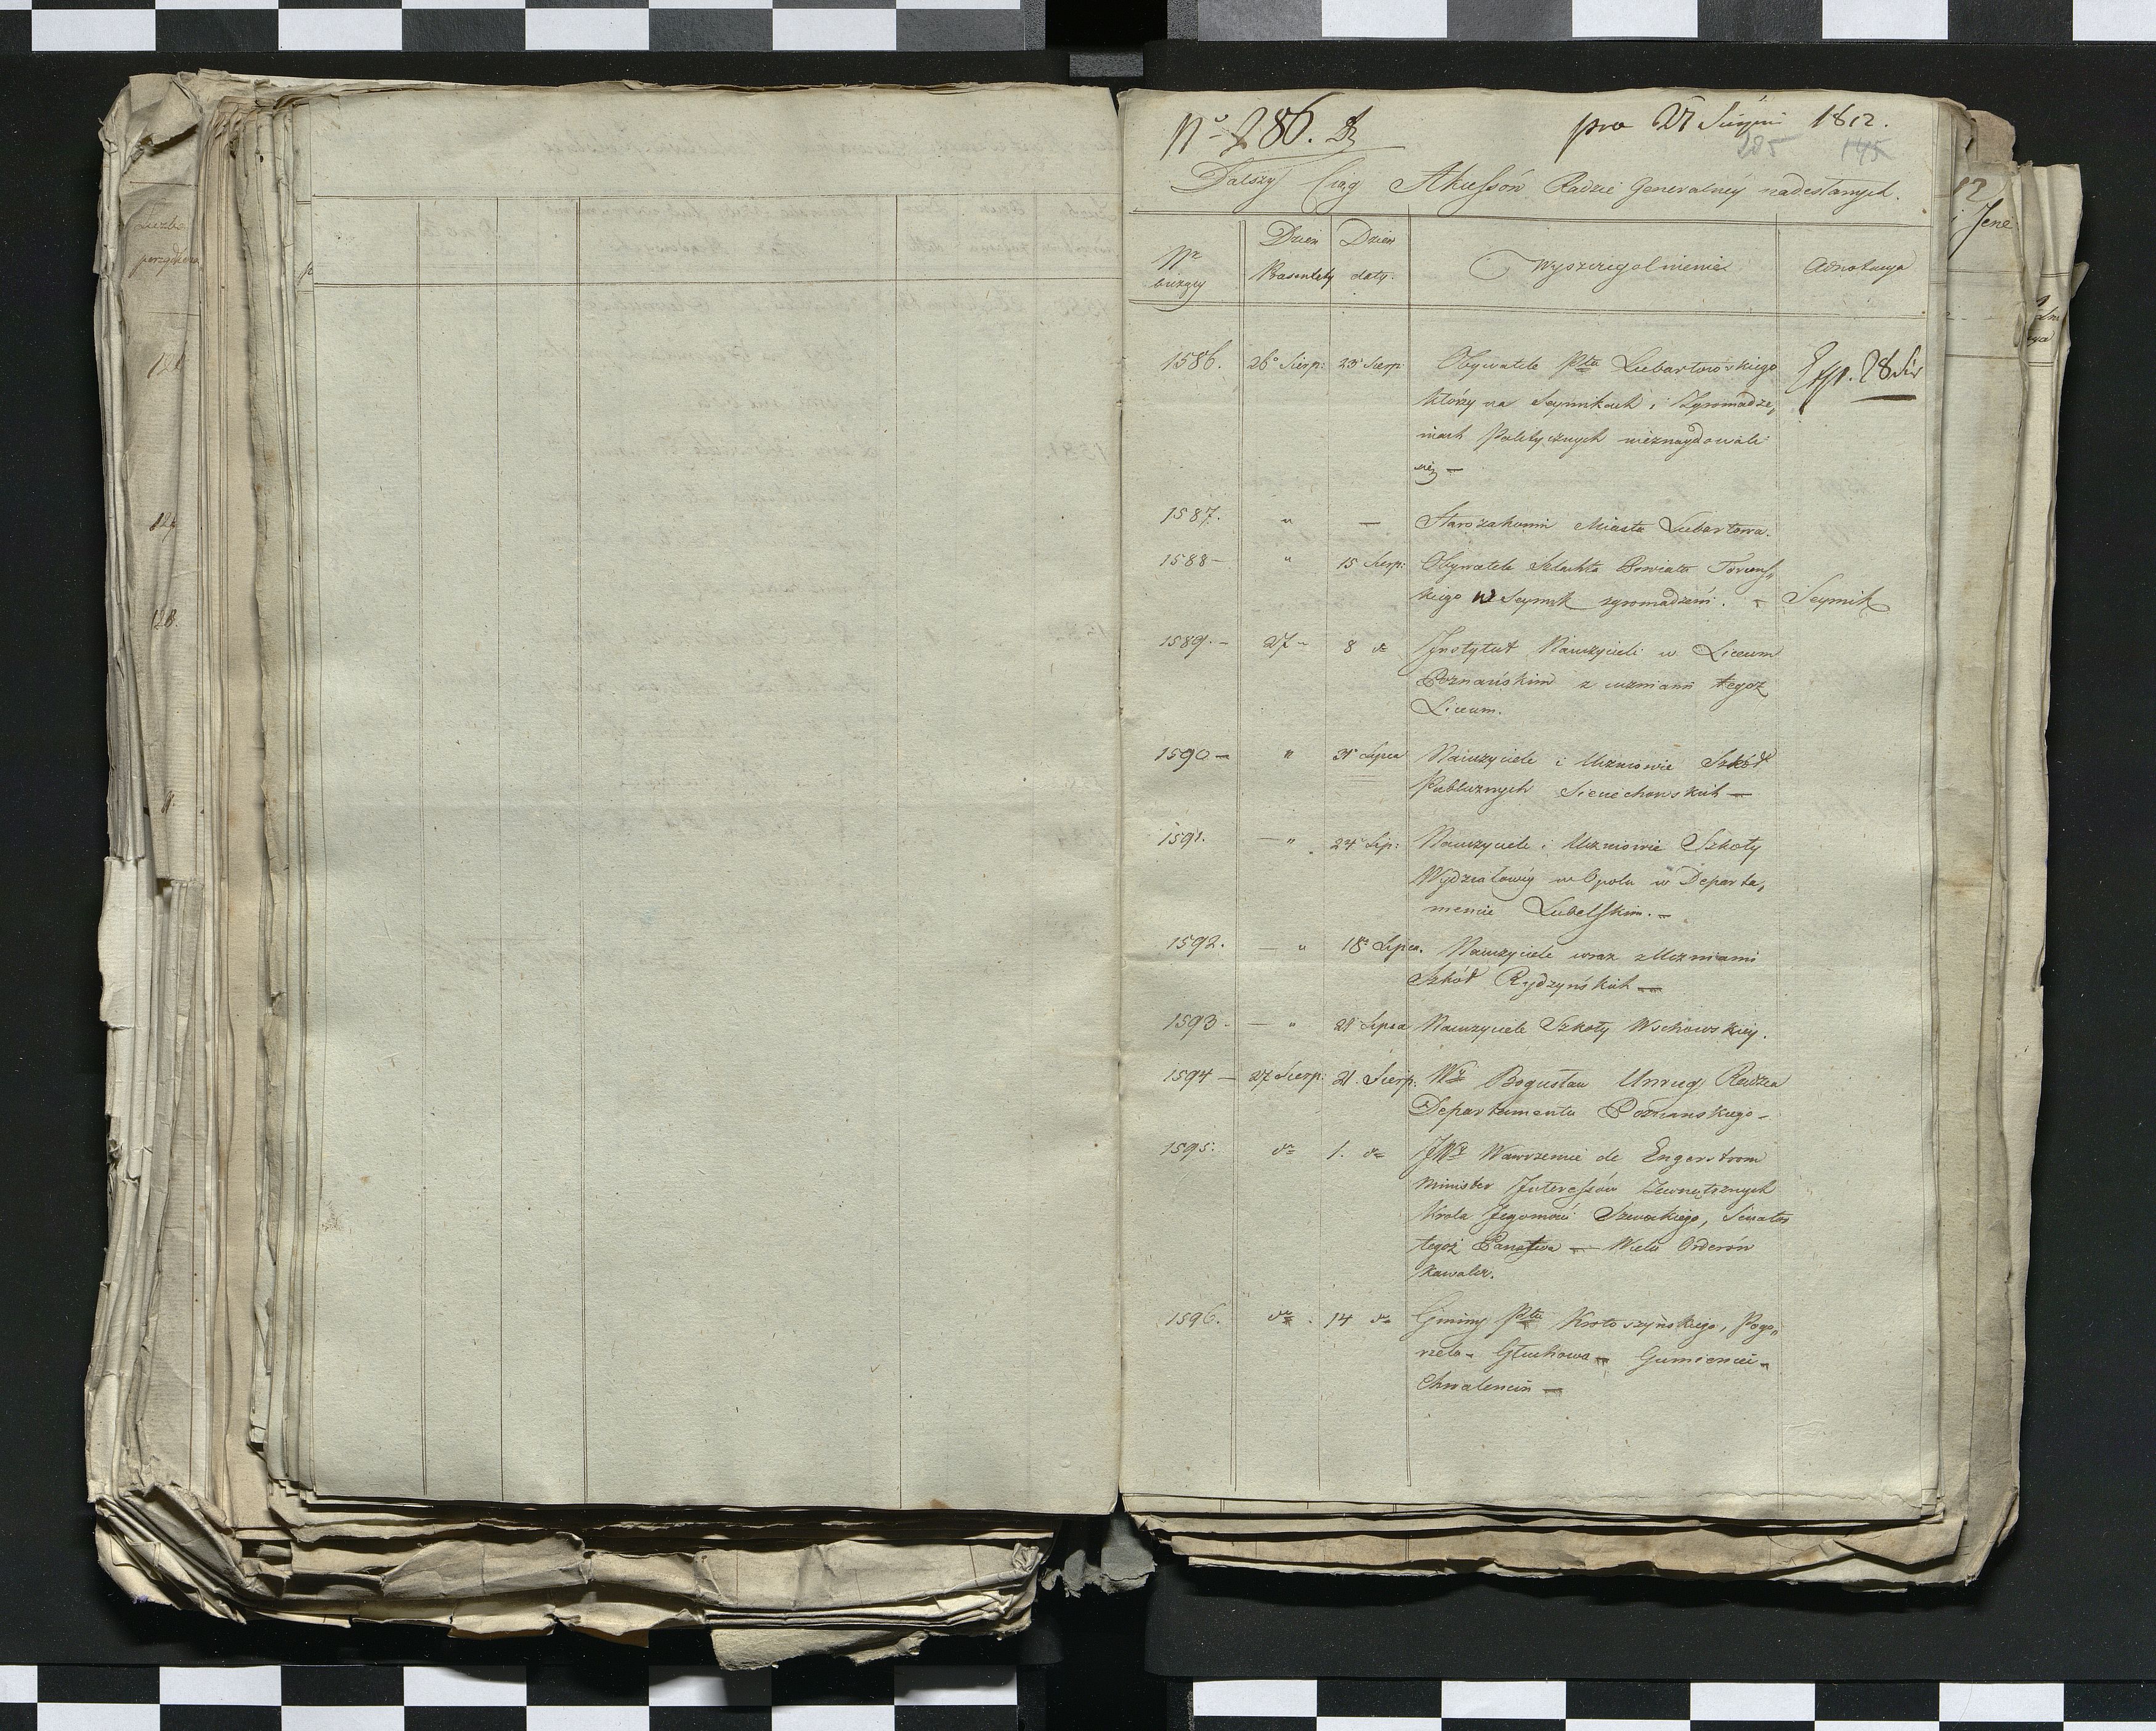 Liczba
porządkowa
No 286.
pra 27 Sierpni 1812.
285 145
Dalszy Ciąg Akcessów Radzie Generalnéy nadesłanych.
Nr bieżący Dzień Prasentaty Dzień daty. Wyszczegolnienie Adnotacya
1586. 26° Sierp: 23 Sierp: Obywatele Pttu Lubartowskiego Exp. 28 Sier
którzy na Seymikach i Zgromadze„
niach Politycznych nieznaydowali
się —
1587. " — Starozakonni Miasta Lubartowa.
1588 — " 15 Sierp: Obywatele Szlachta Powiatu Toruns„
kiego w Seymik zgromadzeni. — Seymik
1589. — 27 — 8 do Instytut Nauczycieli w Liceum
Poznańskim z uczniami tegoż
Liceum.
1590 — " 31 Lipca Nauczyciele i Uczniowie Szkół
Publicznych Sieciechowskich —
1591. — " 24 Lip: Nauczyciele i Uczniowie Szkoły
Wydziałowéy w Opolu w Departa„
mencie Lubelskim. —
1592. — " 18 Lipca. Nauczyciele wraz z Uczniami
Szkół Rydzyńskich —
1593 — " 21 Lipca Nauczyciele Szkoły Wschowskiey.
1594 — 27 Sierp: 21. Sierp: Wy Bogusław Unrug Radzca
Departamentu Poznanskiego —
1595: do 1. do JWy Wawrzeniec de Engerstrom
Minister Interessów Zewnętrznych
Krola Jegomości Szwedzkiego, Senator
tegoż Panstwa — Wielu Orderów
Kawaler.
1596. do . 14 do Gminy Pttu Krotoszyńskiego, Pogo„
rzela — Głuchowa — Gumienice —
Chwalencin —